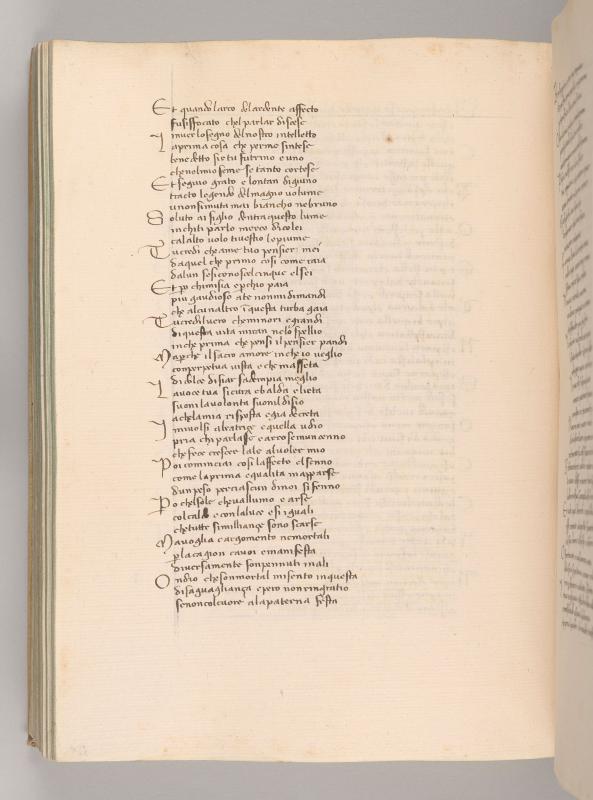 Et quando larco delardente affecto
fusiffocato chel parlar discese
inver losegno del nostro intelletto
La prima cosa che per me sintese
benedetto sie tu fu trino e uno
che nel mio seme se tanto cortese
Et seguio grato e lontan digiuno
tracto legendo del magno volume
u non si muta mai biancho ne bruno
Soluto ai figlio dentra questo lume
in chi ti parlo merce di colei
cal alto volo ti vestio le piume
Tu credi che a me tuo pensier mei
da quel che primo cosi come raia
dalun se si conosce el cinque el sei
Et po chi mi sia e perchio paia
piu gaudioso a te non mi dimandi
che alcun altro i questa turba gaia
Tu credi l vero che minori e grandi
di questa vita miran nelo speglio
in che prima che pensi il pensier pandi
Ma perche il sacro amore in che io veglio
con perpetua vista e che masseta
di dolce disiar sadempia meglio
La voce tua sicura e balda e lieta
suoni la volonta suoni l disio
a che la mia risposta e gia decreta
I mi volsi a beatrice e quella udio
pria chi parlasse e arosemi un cenno
che fece crescer lale al voler mio
Poi cominciai cosi laffecto el senno
come la prima equalita mapparse
dun peso per ciascun di noi si fenno
Po chel sole che vallumo e arse
col caldo e con la luce e si iguali
che tutte simiglianze sono scarse
Ma voglia e argomento ne mortali
per la cagion ca voi e manifesta
diversamente son pennuti in ali
Ondio che son mortal mi sento in questa
disaguaglianza e pero non ringratio
se non col cuore a la paterna festa